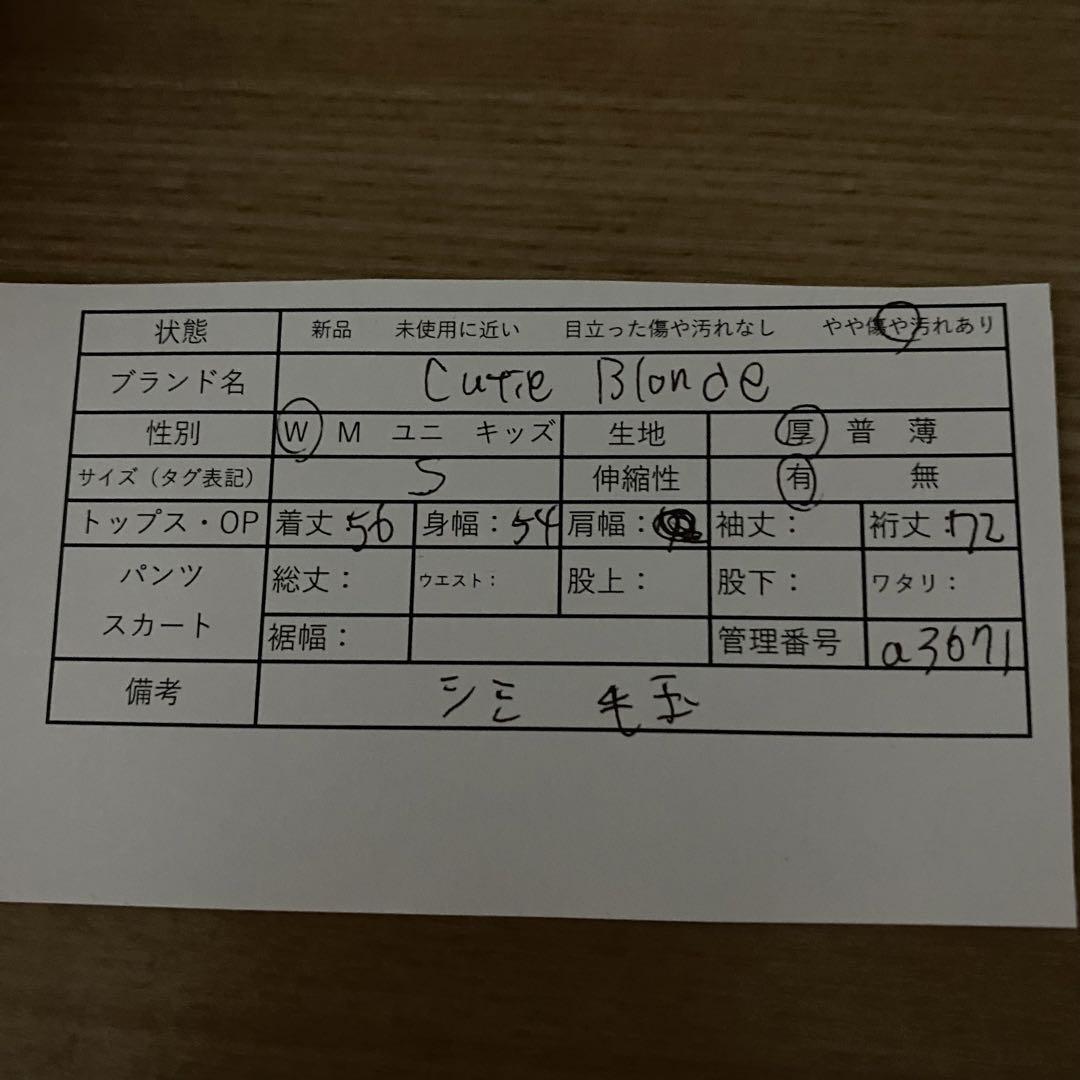 状態 新品 未使用に近い 目立った傷や汚れなし やや傷や汚れあり
ブランド名 Cutie Blonde
性別 W M ユニ キッズ 生地 厚 普 薄
サイズ（タグ表記） S 伸縮性 有 無
トップス・OP 着丈:56 身幅:54 肩幅: 袖丈: 裄丈:72
パンツ スカート 総丈: ウエスト: 股上: 股下: ワタリ:
裾幅: 管理番号 a3671
備考 シミ 毛玉